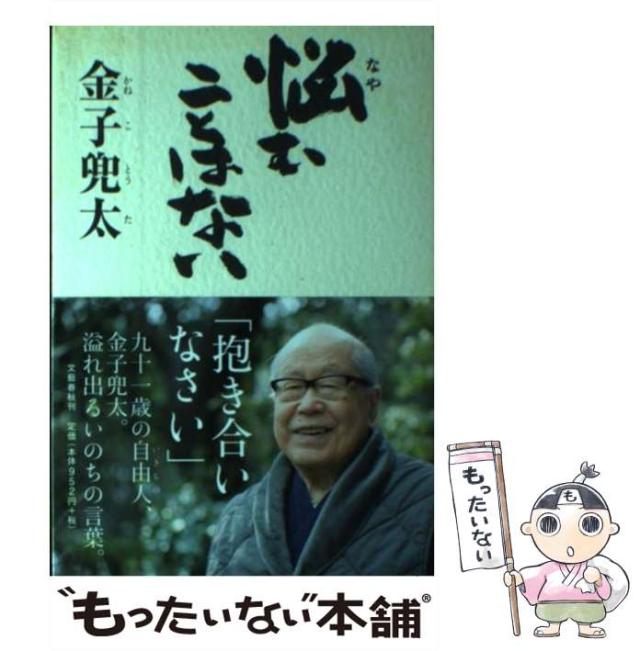 悩む
なや
ことはない
金子兜太
かねことうた
「抱き合い
なさい」
九十一歳の自由人、
金子兜太。
溢れ出るいのちの言葉。
いきもの
文藝春秋刊 定価(本体952円+税)
もったいない
も
"もったいない"本舗®